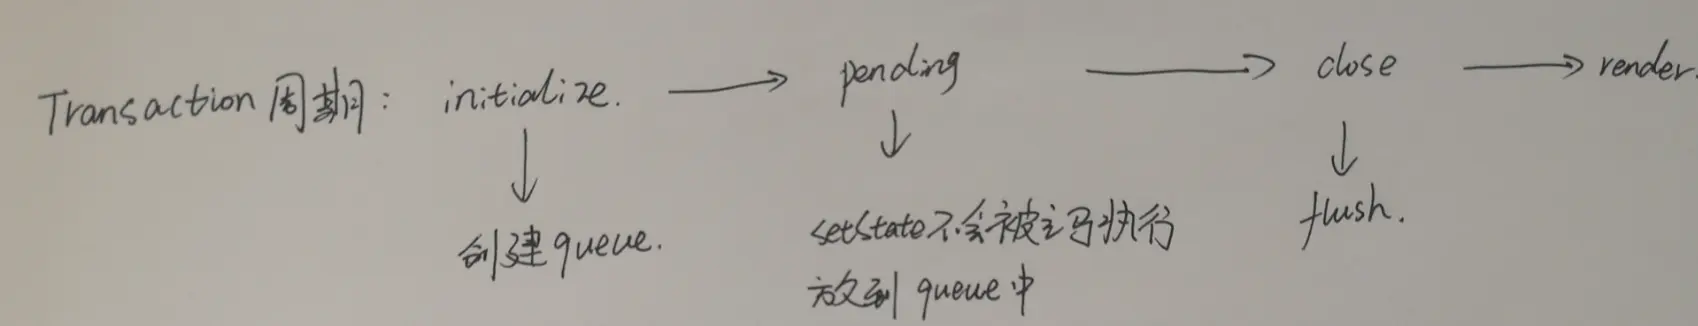 Transaction 周期: initialize. → pending → close → render.
↓ ↓ ↓
创建queue. setState不会被立马执行 flush.
放到 queue中